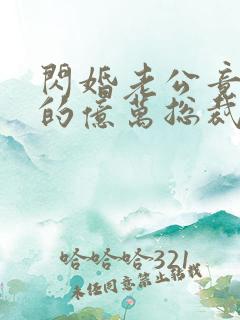 閃婚老公竟
的億萬總裁
哈哈哈321
未任同意禁止轉載